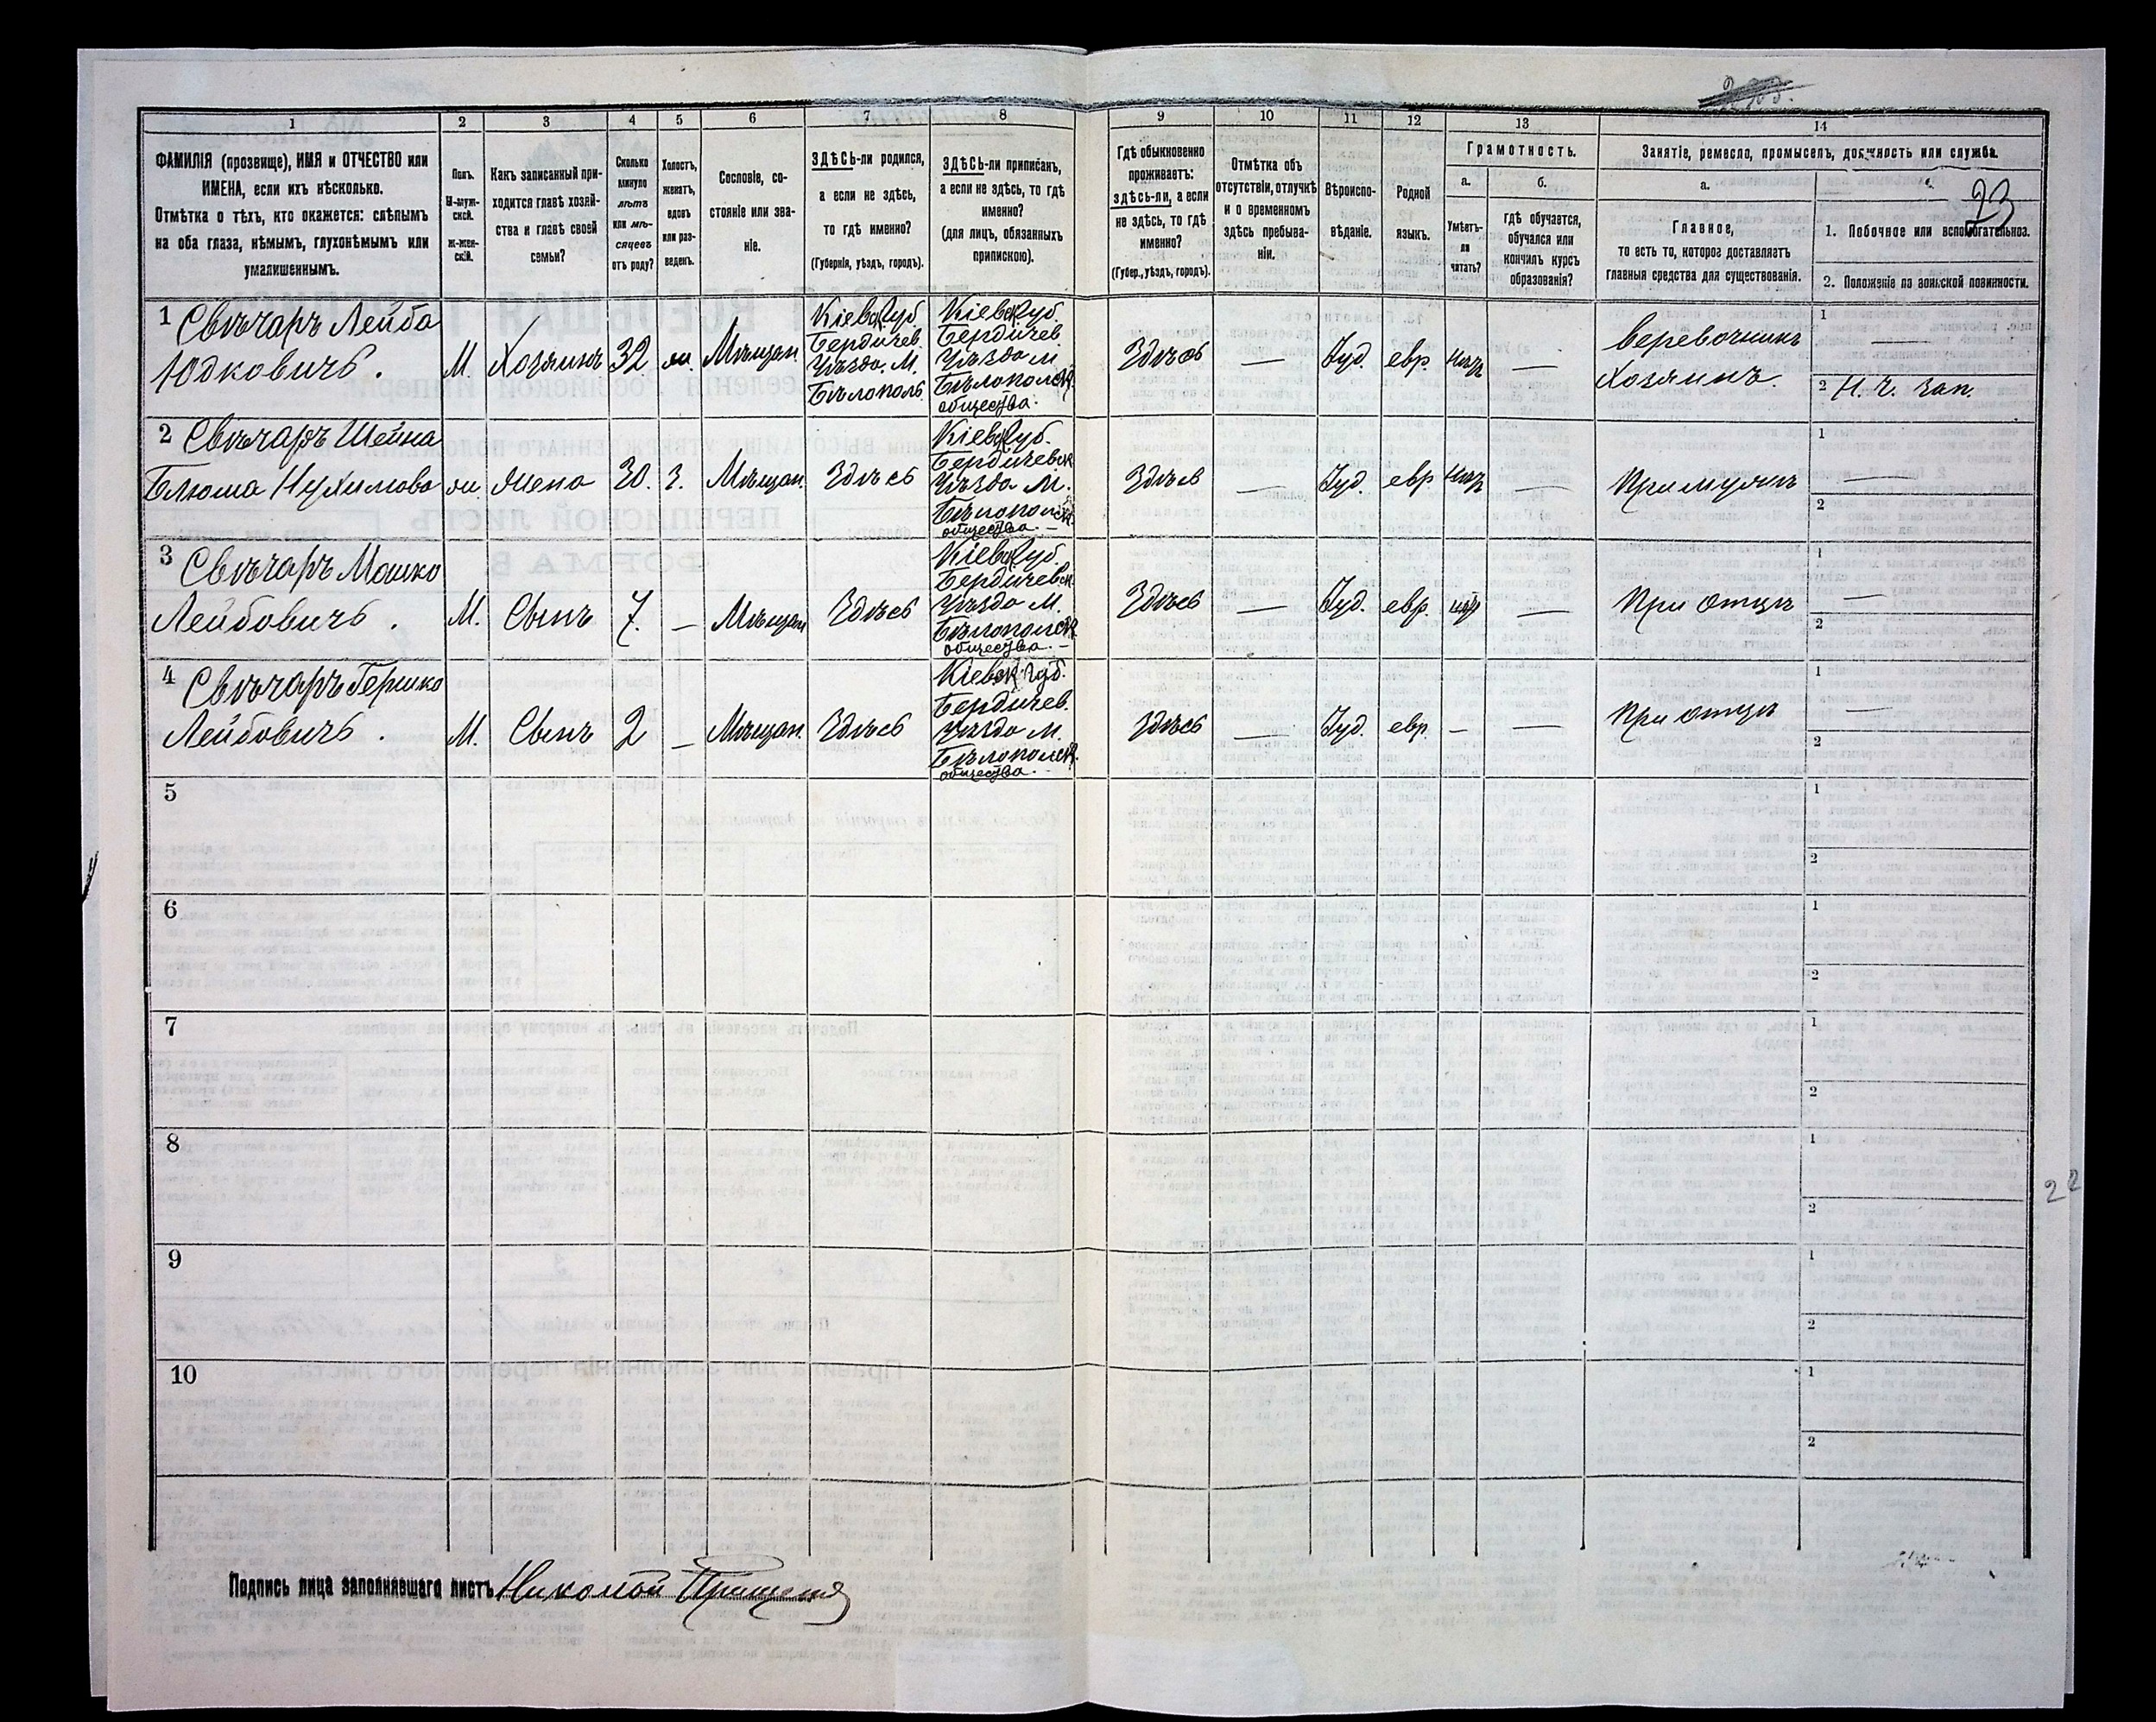 1
2
3
4
5
6
7
8
9
10
11
12
13
14
ФАМИЛІЯ (прозвище), ИМЯ и ОТЧЕСТВО или
ИМЕНА, если ихъ нѣсколько.
Отмѣтка о тѣхъ, кто окажется: слѣпымъ
на оба глаза, нѣмымъ, глухонѣмымъ или
умалишеннымъ.
Полъ.
М-муж-
ской.
ж-жен-
скій.
Какъ записанный при-
ходится главѣ хозяй-
ства и главѣ своей
семьи?
Сколько
минуло
лѣтъ
или мѣ-
сяцевъ
отъ роду?
Холостъ,
женатъ,
вдовъ
или раз-
веденъ.
Сословіе, со-
стояніе или зва-
ніе.
ЗДѢСЬ-ли родился,
а если не здѣсь,
то гдѣ именно?
(Губернія, уѣздъ, городъ).
ЗДѢСЬ-ли приписанъ,
а если не здѣсь, то гдѣ
именно?
(для лицъ, обязанныхъ
припискою).
Гдѣ обыкновенно
проживаетъ:
здѣсь-ли, а если
не здѣсь, то гдѣ
именно?
(Губер., уѣздъ, городъ).
Отмѣтка объ
отсутствіи, отлучкѣ
и о временномъ
здѣсь пребыва-
ніи.
Вѣроиспо-
вѣданіе.
Родной
языкъ.
Грамотность.
а.
Умѣетъ-
ли
читать?
б.
гдѣ обучается,
обучался или
кончилъ курсъ
образованія?
Занятіе, ремесло, промыселъ, должность или служба.
а.
Главное,
то есть то, которое доставляетъ
главныя средства для существованія.
23
1. Побочное или вспомогательное.
2. Положеніе по воинской повинности.
1 Свѣчаръ Лейба
Юдковичъ.
М
Хозяинъ
32
ж.
Мѣщан
Кіевск Губ
Бердичев.
Уѣзда. М.
Бѣлополь
Кіевск Губ.
Бердичев
Уѣзда м
Бѣлопольск.
общества.
Здѣсь
—
Іуд.
евр.
—
веревочникъ
Хозяинъ.
1 —
2 Н. Ч. Зап.
2 Свѣчаръ Шейна
Блюма Нухимова
ж
жена
30.
З.
Мѣщан.
Здѣсь
Кіевск Губ.
Бердичевск
Уѣзда М.
Бѣлопольск.
общества. —
Здѣсь
—
Іуд.
евр
—
При мужѣ
1 —
2
3 Свѣчаръ Мошко
Лейбовичъ.
М.
Сынъ
7.
—
Мѣщан
Здѣсь
Кіевск Губ.
Бердичевск.
Уѣзда М.
Бѣлопольск.
общества. —
Здѣсь
—
Іуд.
евр.
—
При отцѣ
1 —
2
4 Свѣчаръ Гершко
Лейбовичъ.
М.
Сынъ
2
—
Мѣщан.
Здѣсь
Кіевск. губ.
Бердичев.
Уѣзда М.
Бѣлопольск.
общества. —
Здѣсь
—
Іуд.
евр.
—
—
При отцѣ
1 —
2
5
1
2
6
1
2
7
1
2
8
1
2
9
1
2
10
1
2
22
Подпись лица заполнявшаго листъ Николай